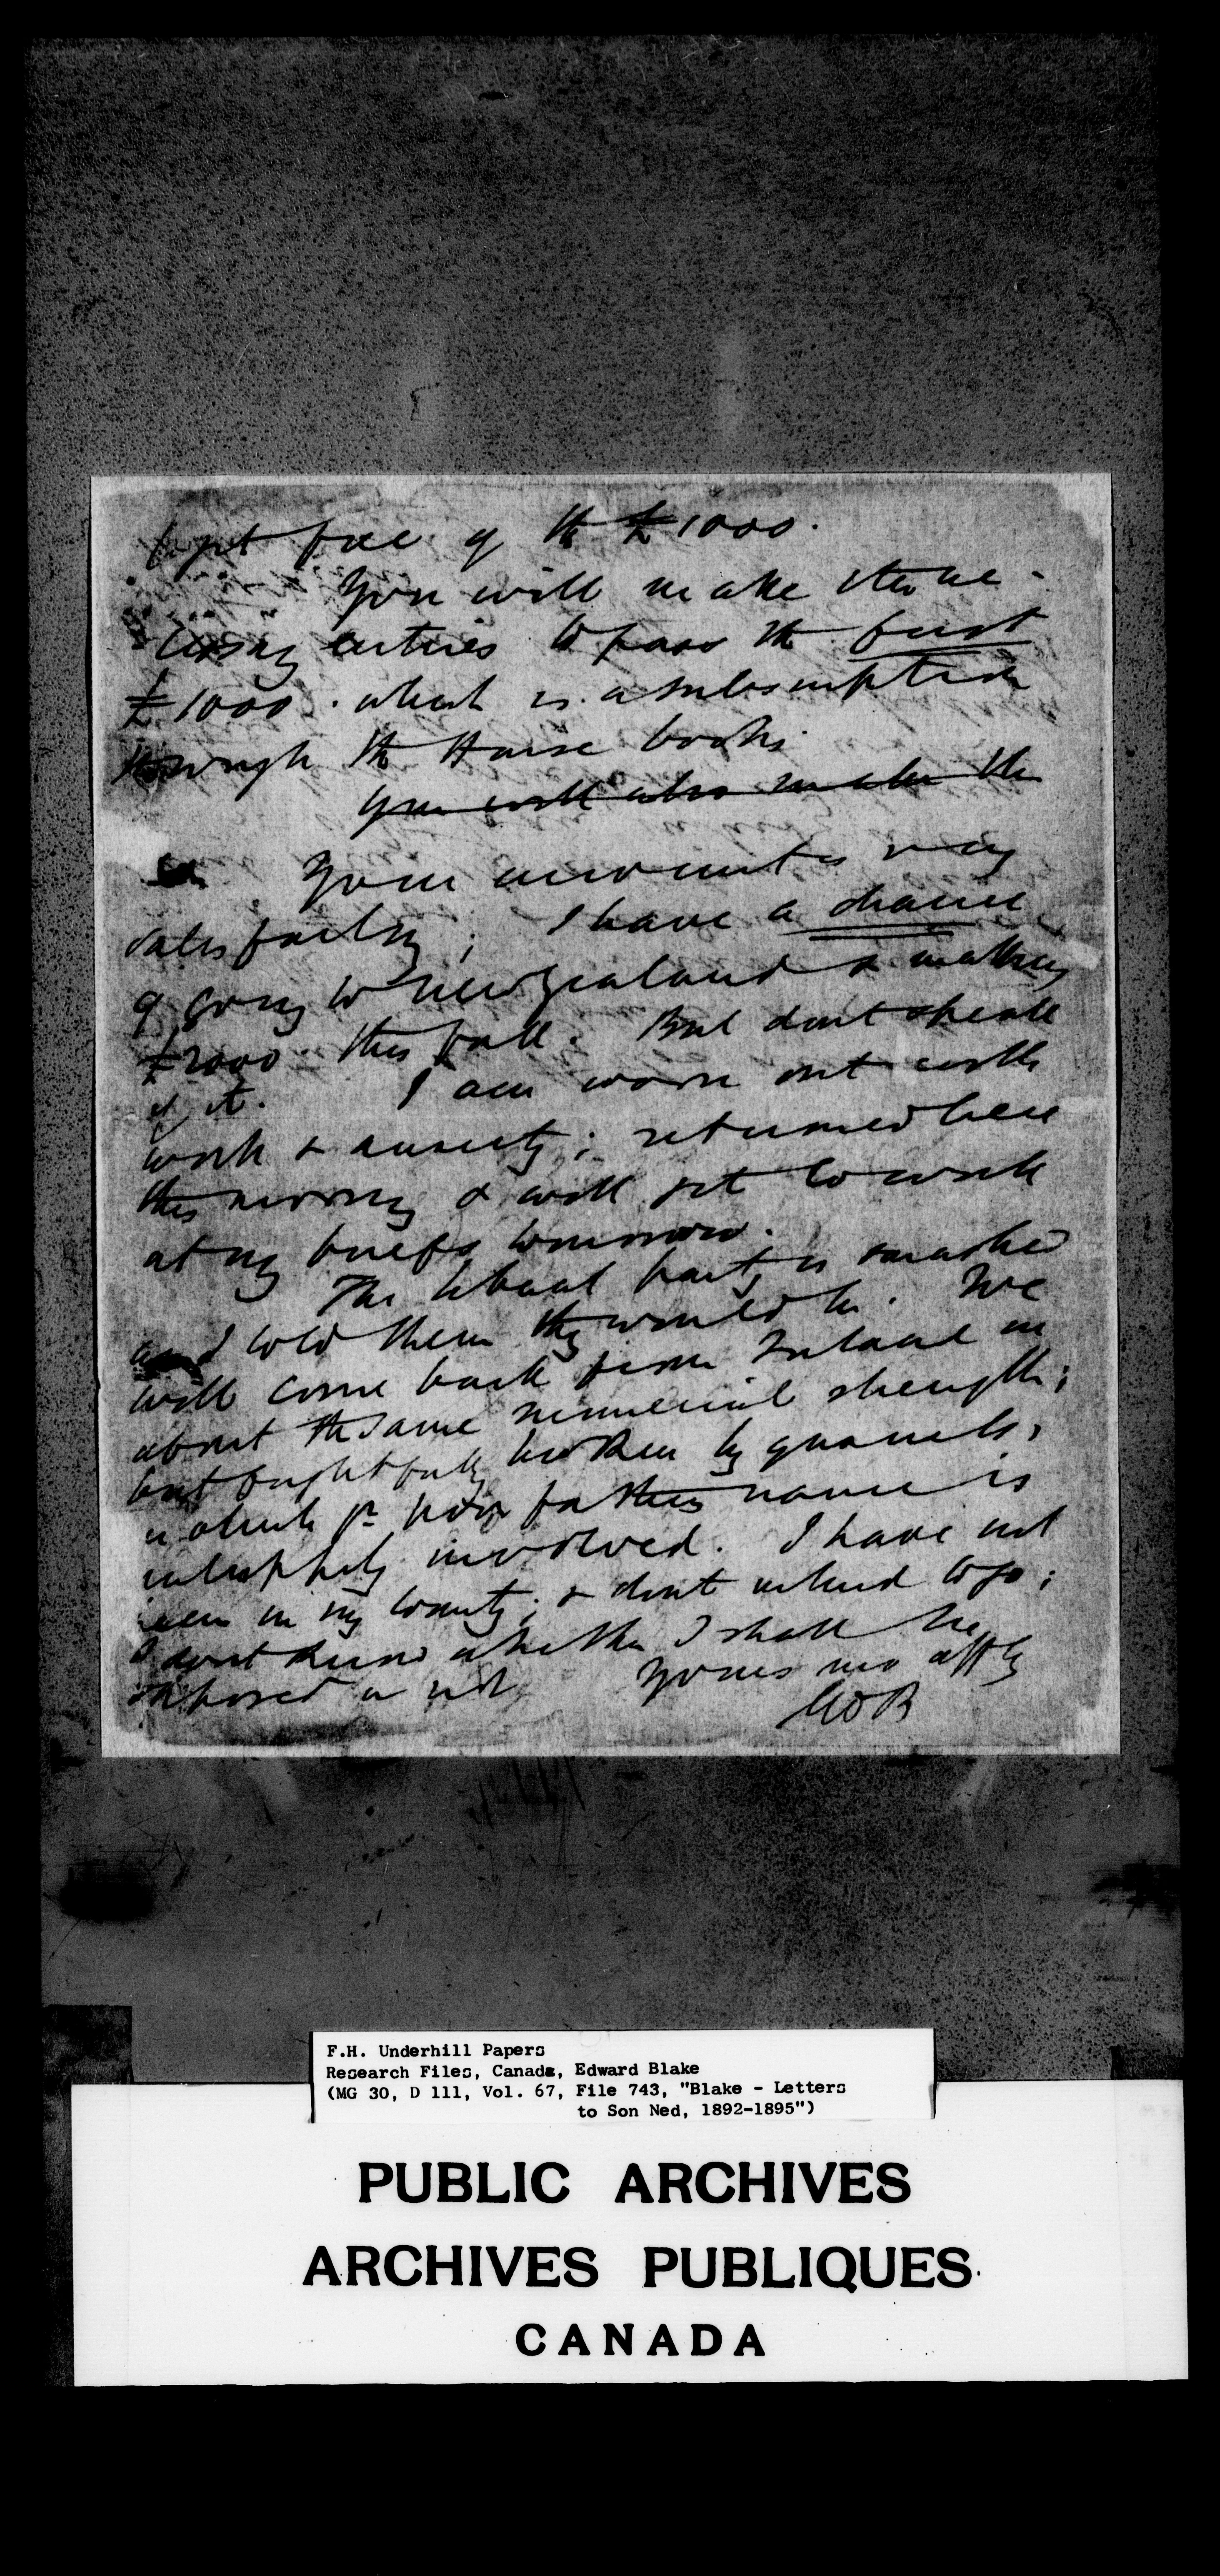 to get free of the £1000.
You will make the ne-
cessary entries to pass the first
£1000. which is a subscription
through the House books.
You will also make the
Your account is very
satisfactory; I have a chance
of going to New Zealand & making
£2000 this fall. But dont speak
of it. I am worn out with
work & anxiety; returned here
this morning & will get to work
at my briefs tomorrow.
The liberal party is smashed
as I told them they would be. We
will come back from Ireland in
about the same numerical strength;
but frightfully broken by quarrels,
in which yr poor father's name is
involved. I have not
been in my County; & dont intend to go;
I dont know whether I shall be
opposed or not. Yours mo affly
F.H. Underhill Papers
Research Files, Canada, Edward Blake
(MG 30, D 111, Vol. 67, File 743, "Blake - Letters
to Son Ned, 1892-1895")
PUBLIC ARCHIVES
ARCHIVES PUBLIQUES
CANADA